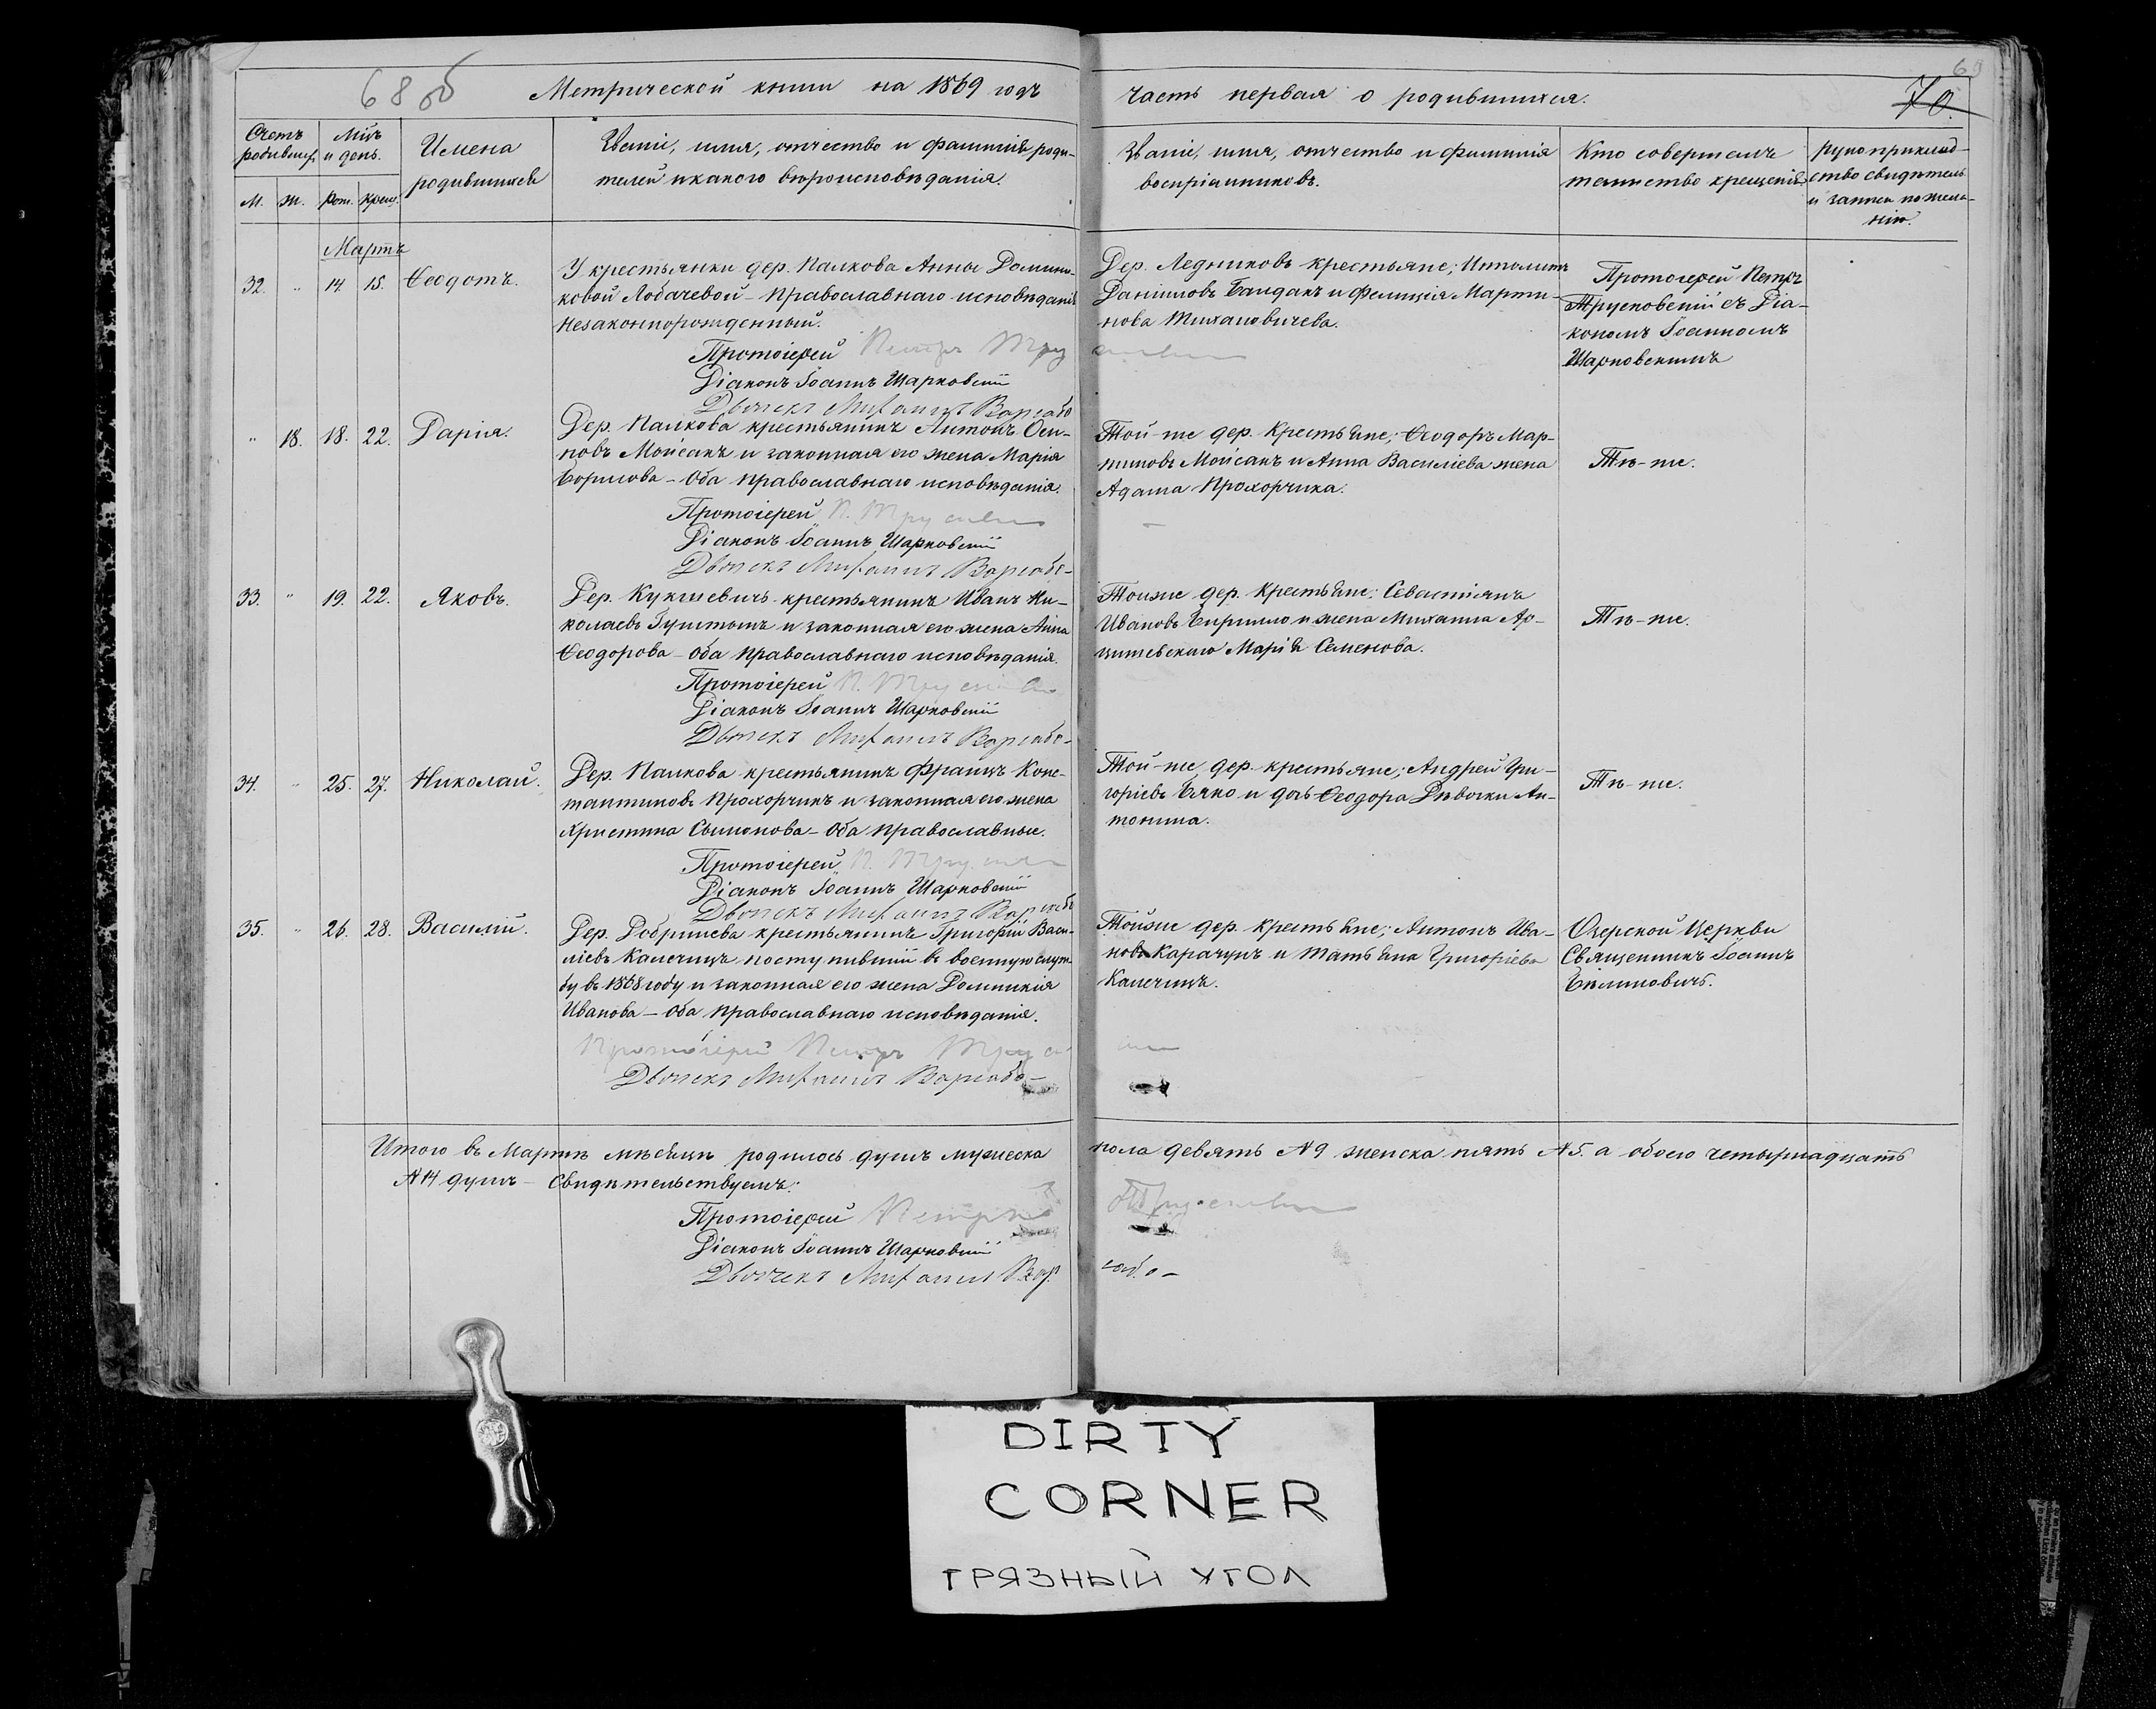 68 об
Метрической книги на 1869 годъ
Часть первая о родившихся.
69
70.
Счетъ родивших.
М. Ж.
Мцъ и день.
Рож. Крещ.
Имена
родившихся
Званіе, имя, отчество и фамилія роди-
телей и какого вѣроисповѣданія.
Званіе, имя, отчество и фамилія
воспріемниковъ.
Кто совершалъ
таинство крещенія
рукоприклад-
ство свидѣтель
и записи по жела-
нію.
Мартъ
32. " 14 15. Ѳеодотъ.
У крестьянки дер. Палкова Анны Домини-
ковой Лобачевой – православнаго исповѣданія
незаконнорожденный.
Протоіерей Петръ
Діаконъ Іоаннъ Шарковскій
Дьячекъ Михаилъ
Дер. Ледниковъ крестьяне; Ипполитъ
Даніиловъ Балдакъ и Фелиція Марти-
нова Тихановичева.
Протоіерей Петръ
Трусковскій съ Діа-
кономъ Іоанномъ
Шарковскимъ
" 18. 18. 22. Дарія.
Дер. Палкова крестьянинъ Антонъ Оси-
повъ Мойсакъ и законная его жена Марія
Борисова – оба православнаго исповѣданія.
Протоіерей П.
Діаконъ Іоаннъ Шарковскій
Дьячекъ Михаилъ
Той-же дер. крестьяне; Ѳеодоръ Мар-
тиновъ Мойсакъ и Анна Василіева жена
Адама Прохорчика.
Тѣ-же.
33. " 19. 22. Яковъ.
Дер. Кукшевичъ крестьянинъ Иванъ Ни-
колаевъ и законная его жена Анна
Ѳеодорова – оба православнаго исповѣданія.
Протоіерей П.
Діаконъ Іоаннъ Шарковскій
Дьячекъ Михаилъ
Тойже дер. крестьяне; Севастіянъ
Ивановъ и жена Михаила Ар-
цишевскаго Марія Семенова.
Тѣ-же.
34. " 25. 27. Николай.
Дер. Палкова крестьянинъ Францъ Конс-
тантиновъ Прохорчикъ и законная его жена
Христина Сымонова – оба православные.
Протоіерей П.
Діаконъ Іоаннъ Шарковскій
Дьячекъ Михаилъ
Той-же дер. крестьяне; Андрей Гри-
горіевъ Бяко и дочь Ѳеодора Дѣвочки Ан-
тонина.
Тѣ-же.
35. " 26. 28. Василій.
Дер. Добришева крестьянинъ Григорій Васи-
ліевъ Калечицъ поступившій въ военную служ-
бу въ 1868 году и законная его жена Доминикія
Иванова – оба православнаго исповѣданія.
Протоіерей Петръ
Дьячекъ Михаилъ
Тойже дер. крестьяне; Антонъ Ива-
новъ Карачунъ и Татьяна Григоріева
Калечицъ.
Озерской Церкви
Священникъ Іоаннъ
Бѣлиновичъ.
Итого въ Мартѣ мѣсяцѣ родилось душъ мужеска пола девять №9 женска пять №5. а обоего четырнадцать
№14 душъ – Свидѣтельствуемъ:
Протоіерей Петръ
Діаконъ Іоаннъ Шарковскій
Дьячекъ Михаилъ
DIRTY
CORNER
ГРЯЗНЫЙ УГОЛ